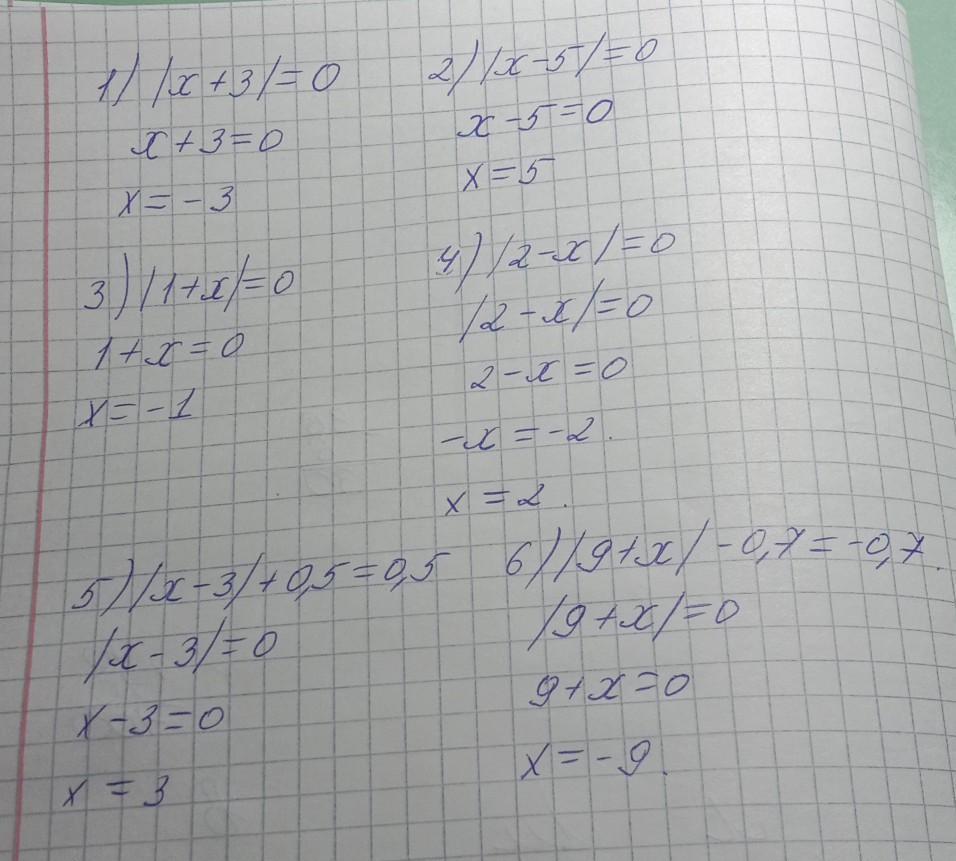 1) |x+3|=0
x+3=0
x=-3
2) |x-5|=0
x-5=0
x=5
3) |1+x|=0
1+x=0
x=-1
4) |2-x|=0
|2-x|=0
2-x=0
-x=-2.
x=2.
5) |x-3|+0,5=0,5
|x-3|=0
x-3=0
x=3
6) |9+x|-0,7=-0,7.
|9+x|=0
9+x=0
x=-9.